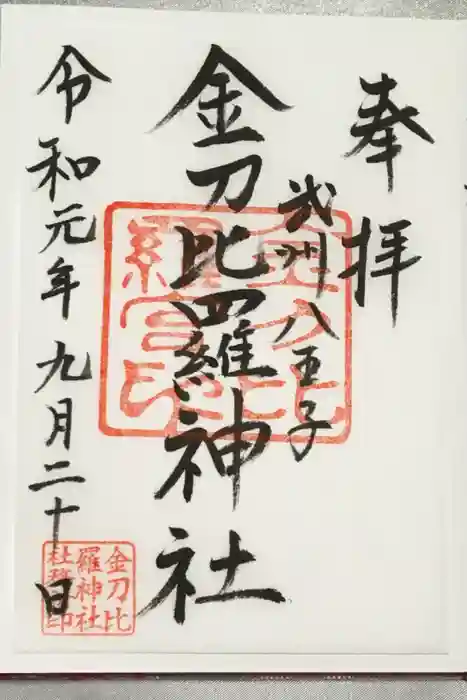 奉拝
武州八王子
金刀比羅神社
令和元年九月二十日
金刀比
羅神社
社務所印